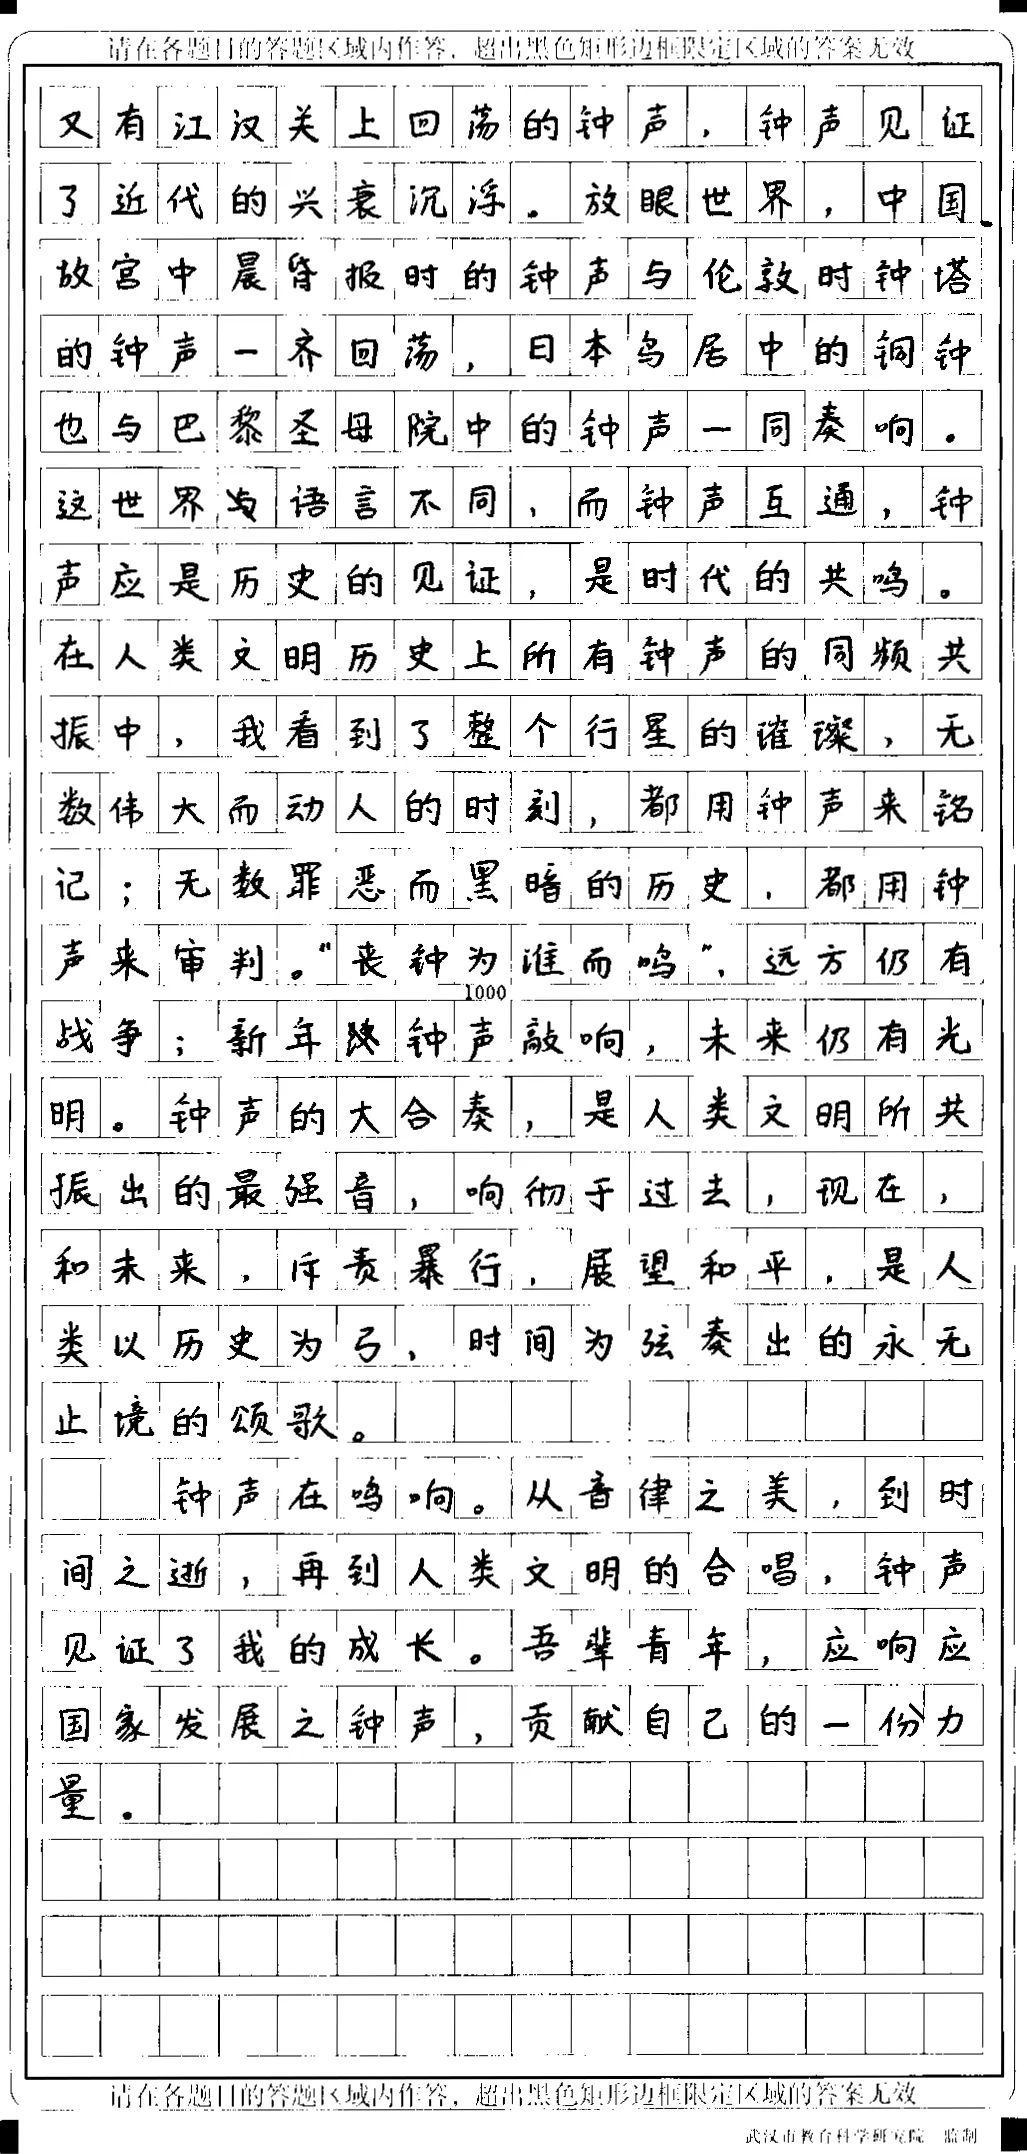 请在各题目的答题区域内作答，超出黑色矩形边框限定区域的答案无效
又有江汉关上回荡的钟声，钟声见证
了近代的兴衰沉浮。放眼世界，中国
故宫中晨昏报时的钟声与伦敦时钟塔
的钟声一齐回荡，日本鸟居中的铜钟
也与巴黎圣母院中的钟声一同奏响。
这世界与语言不同，而钟声互通，钟
声应是历史的见证，是时代的共鸣。
在人类文明历史上所有钟声的同频共
振中，我看到了整个行星的璀璨，无
数伟大而动人的时刻，都用钟声来铭
记；无数罪恶而黑暗的历史，都用钟
声来审判。“丧钟为谁而鸣”，远方仍有
1000
战争；新年钟声敲响，未来仍有光
明。钟声的大合奏，是人类文明所共
振出的最强音，响彻于过去，现在，
和未来，斥责暴行，展望和平，是人
类以历史为弓，时间为弦奏出的永无
止境的颂歌。
钟声在鸣响。从音律之美，到时
间之逝，再到人类文明的合唱，钟声
见证了我的成长。吾辈青年，应响应
国家发展之钟声，贡献自己的一份力
量。
请在各题目的答题区域内作答，超出黑色矩形边框限定区域的答案无效
武汉市教育科学研究院 监制